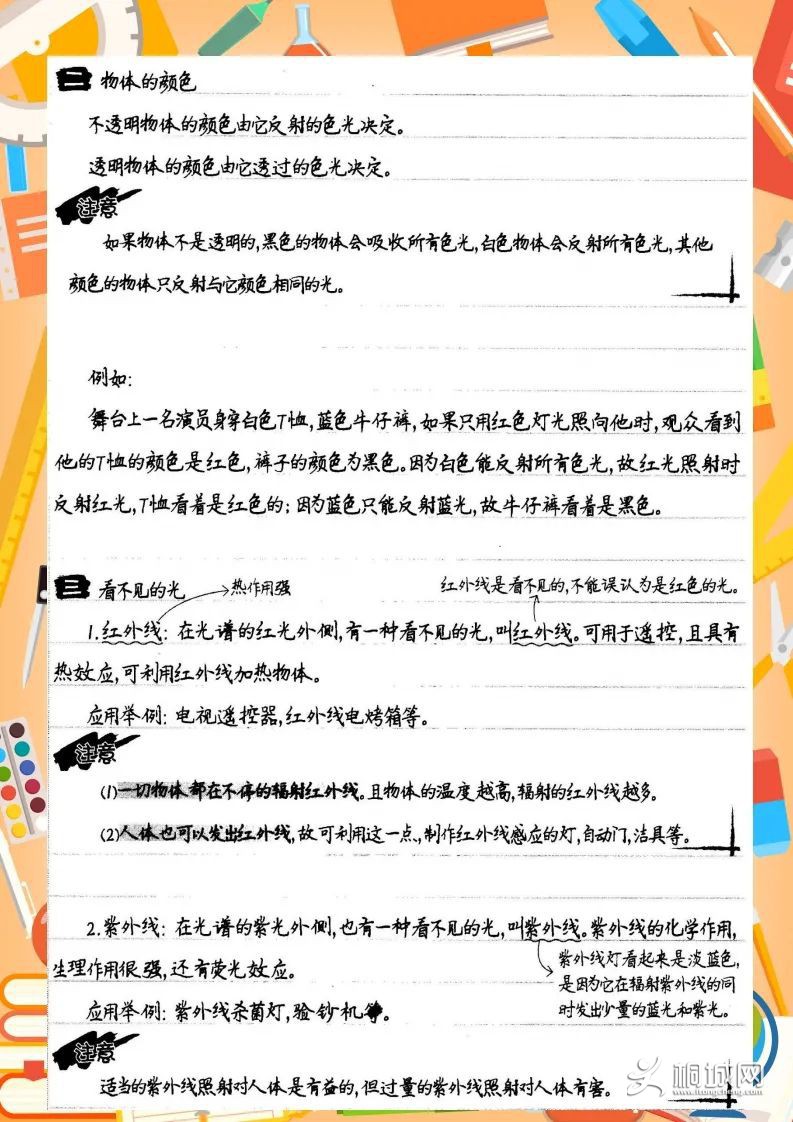 二 物体的颜色
不透明物体的颜色由它反射的色光决定。
透明物体的颜色由它透过的色光决定。
注意
如果物体不是透明的,黑色的物体会吸收所有色光,白色物体会反射所有色光,其他
颜色的物体只反射与它颜色相同的光。
例如:
舞台上一名演员身穿白色T恤,蓝色牛仔裤,如果只用红色灯光照向他时,观众看到
他的T恤的颜色是红色,裤子的颜色为黑色。因为白色能反射所有色光,故红光照射时
反射红光,T恤看着是红色的;因为蓝色只能反射蓝光,故牛仔裤看着是黑色。
三 看不见的光
热作用强
红外线是看不见的,不能误认为是红色的光。
1.红外线:在光谱的红光外侧,有一种看不见的光,叫红外线。可用于遥控,且具有
热效应,可利用红外线加热物体。
应用举例:电视遥控器,红外线电烤箱等。
注意
(1)一切物体都在不停的辐射红外线。且物体的温度越高,辐射的红外线越多。
(2)人体也可以发出红外线,故可利用这一点,制作红外线感应的灯,自动门,洁具等。
2.紫外线:在光谱的紫光外侧,也有一种看不见的光,叫紫外线。紫外线的化学作用,
生理作用很强,还有荧光效应。
紫外线灯看起来是淡蓝色,
是因为它在辐射紫外线的同
时发出少量的蓝光和紫光。
应用举例:紫外线杀菌灯,验钞机等。
注意
适当的紫外线照射对人体是有益的,但过量的紫外线照射对人体有害。
桐城网